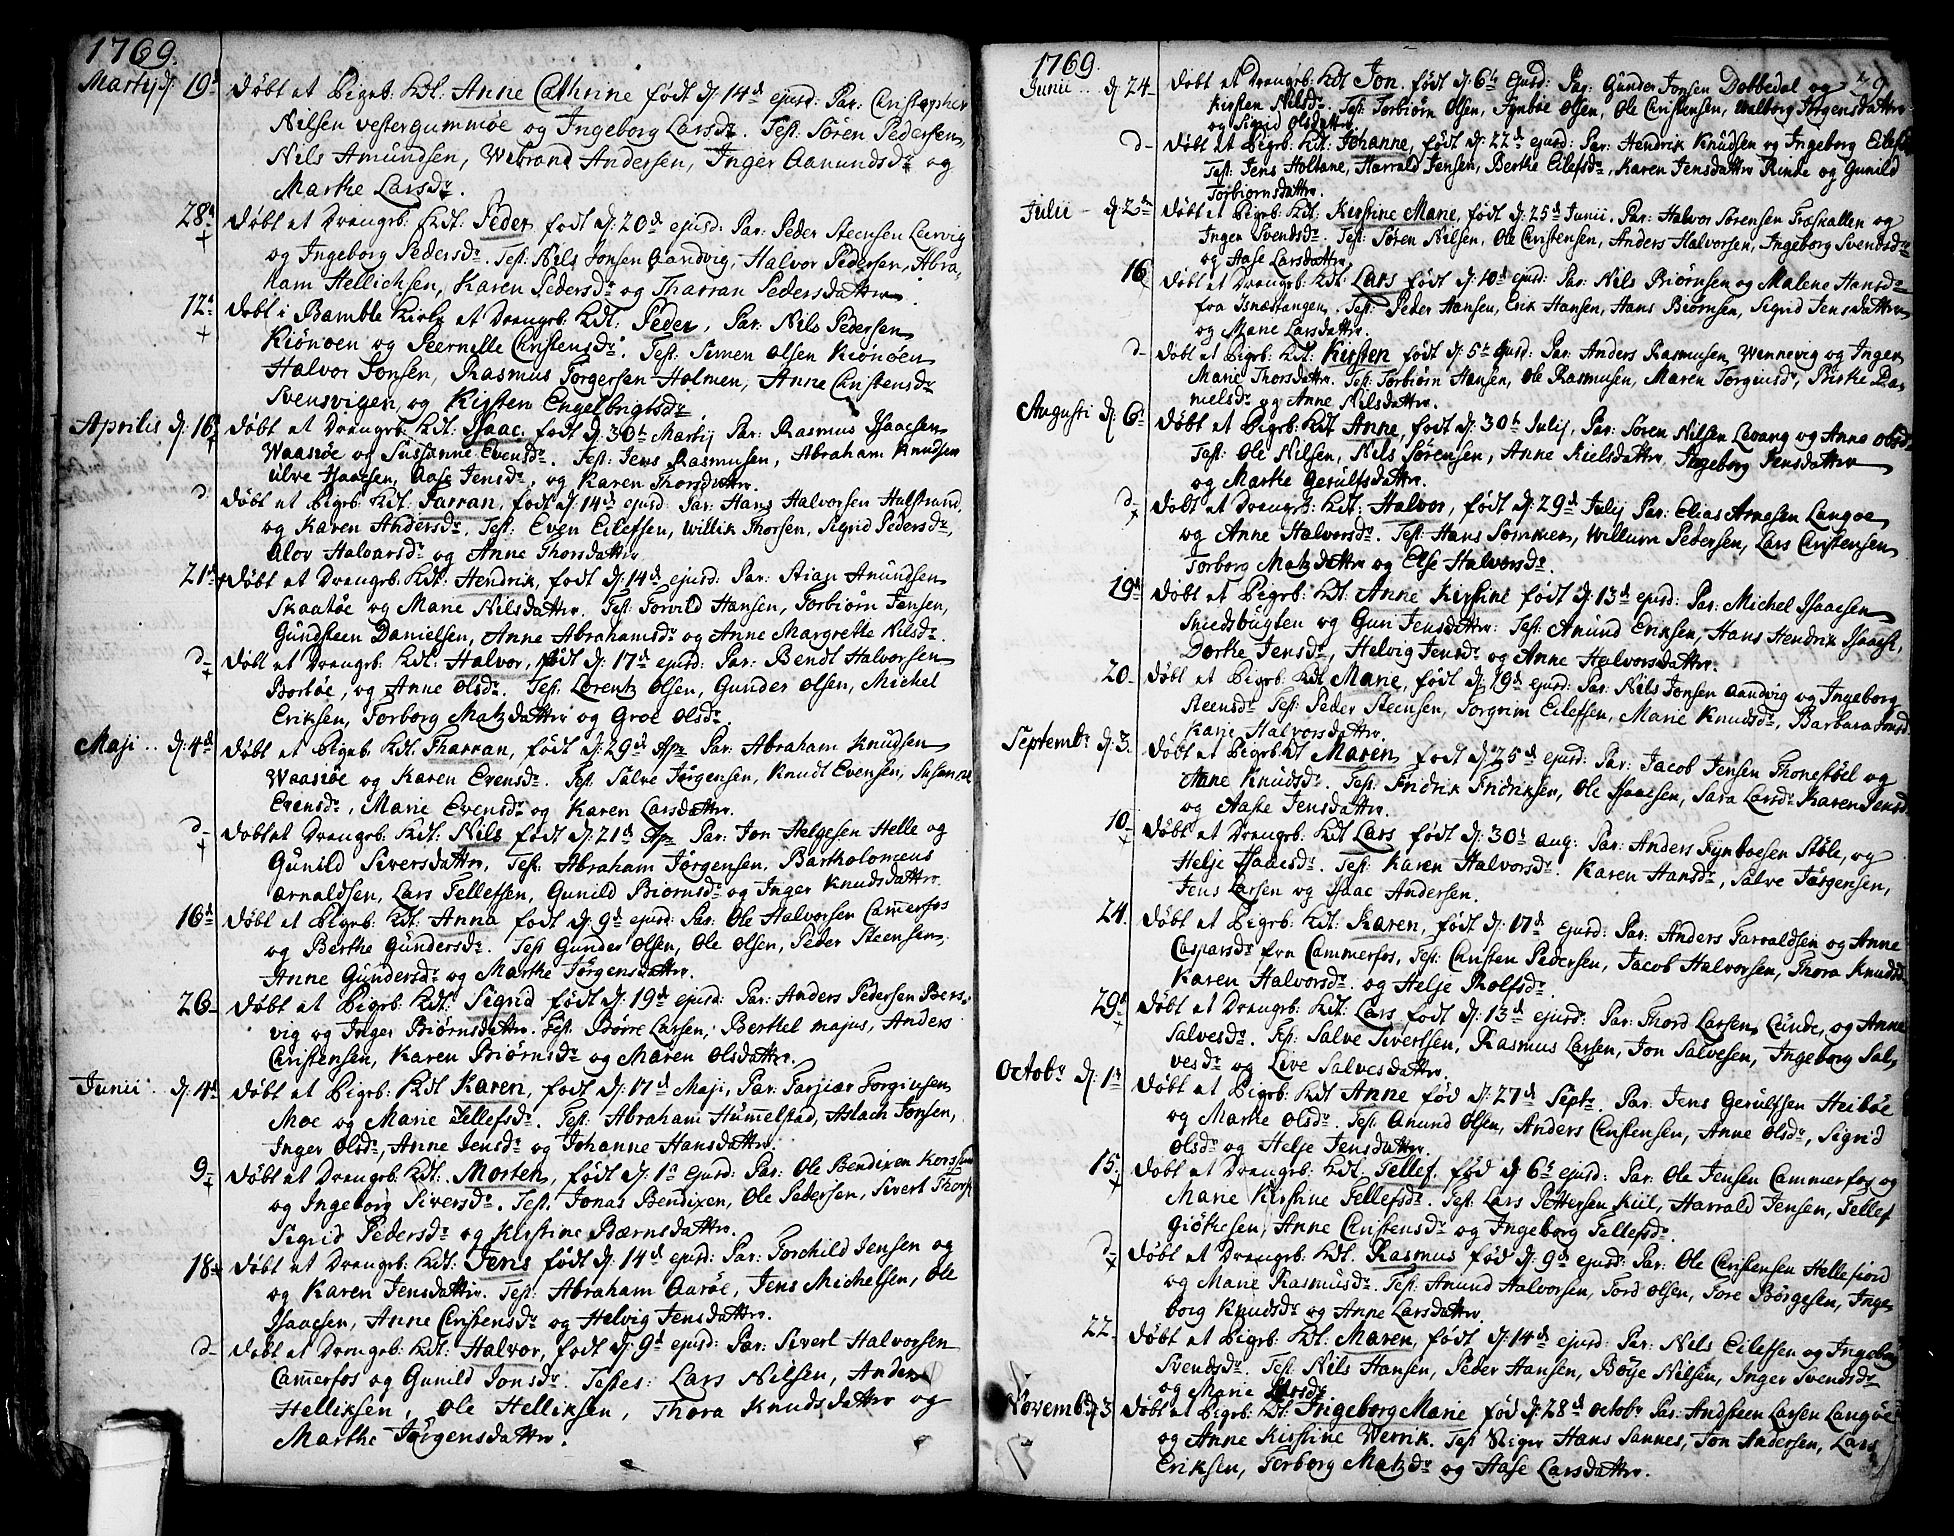 1769.
Martij d. 19d Døbt et Pigeb: Kdt: Anne Cathrine født d: 14d ejusd: Par: Christopher
Nilsen vestergummøe og Ingeborg Larsdr. Test: Sören Pedersen,
Nils Amundsen, Webrand Andersen, Inger Aanundsdr og
Marthe Larsdr.
28d Døbt et Drengb: Kdt: Peder født d: 20d ejusd: Par: Peder Steensen Lervig
og Ingeborg Pedersdr. Test: Nils Jonsen Aandvig, Halvor Pedersen, Abra-
ham Hellichsen, Karen Pedersdr og Tharran Pedersdattr.
12d Døbt i Bamble Kirke et Drengb: Kdt: Peder, Par: Nils Pedersen
Kiönöen og Peernille Christensdr. Test: Simen Olsen Kiönöen
Halvor Jonsen, Rasmus Torgersen Holmen, Anne Christensdr
Svensvigen og Kirsten Engelbrigtsdr.
Aprilis d: 16 Døbt et Drengb: Kdt: Isaac, født d: 30t Martij Par: Rasmus Isaacsen
Waasöe og Sussanne Evensdr. Test: Jens Rasmussen, Abraham Knudsen
Ulve Isaacsen, Aase Jensdr, og Karen Thorsdattr.
d Døbt et Pigeb: Kdt: Tarran, født d: 14d ejusd Par: Hans Halvorsen Halstrand,
og Karen Andersdr, Test: Even Eilefsen, Willik Thorsen, Sigrid Pedersdr,
Alov Halvorsdr og Anne Thorsdattr
21d Døbt et Drengb: Kdt: Hendrik, født d: 14d ejusd: Par: Stian Amundsen
Skaatöe og Marie Nilsdattr. Test: Torvild Hansen, Torbiörn Jensen,
Gundsteen Danielsen, Anne Abrahamsdr og Anne Margrethe Nilsdr.
d- Døbt et Drengb: Kdt: Halvor, født d: 17d ejusd: Par: Bendt Halvorsen
Bortöe, og Anne Olsdr. Test: Lorentz Olsen, Gunder Olsen, Michel
Eriksen, Torborg Matzdattr og Groe Olsdr.
Maji .. d: 4d Døbt et Pigeb: Kdt: Tharran, født d: 29d Apr Par: Abraham Knudsen
Waasöe og Karen Evensdr. Test: Salve Jörgensen, Knudt Evensen, Susanne
Evensdr, Marie Evensdr og Karen Larsdattr.
d- Døbt et Drengb: Kdt: Nils født d: 21d Apr Par: Jon Helgesen Helle og
Gunild Siversdattr, Test: Abraham Jörgensen, Bartholomeus
Arnaldsen, Lars Tellefsen, Gunild Biörnsdr og Inger Knudsdattr.
16d Døbt et Pigeb: Kdt: Anna født d: 9d ejusd: Par: Ole Halvorsen Camerfos
og Berthe Gundersdr. Test Gunder Olsen, Ole Olsen, Peder Steensen,
Anne Gundersdr og Marthe Jörgensdattr.
26- Døbt et Pigeb: Kdt: Sigrid født d: 19d ejusd: Par: Anders Pedersen Bers-
vig og Inger Biörnsdattr. Test: Börre Larsen, Berthel Majus, Anders
Christensen, Karen Biörnsdr og Maren Olsdattr.
Junii . d: 4d Døbt et Pigeb: Kdt Karen, født d: 17d Maji, Par: Tarjær Torgiusen
Moe og Marie Tellefsdr. Test: Abraham Hummelstad, Aslach Jonsen,
Inger Olsdr, Anne Jensdr og Johanne Hansdattr.
9- Døbt et Drengb: Kdt: Morten, født d: 1d ejusd: Par: Ole Bendixen
og Ingeborg Siversdr. Test. Jonas Bendixen, Ole Pedersen, Sivert
Sigrid Pedersdr og Kirstine Bærnsdattr.
18 Døbt et Drengb: Kdt: Jens født d: 14d ejusd: Par: Torchild Jensen og
og Karen Jensdattr. Test: Abraham Aaröe, Jens Michelsen, Ole
Isaacsen, Anne Christensdr og Helvig Jensdattr.
d- Døbt et Drengb: Kdt: Halvor, født d: 9d ejusd: Par: Sivert Halvorsen
Camerfos og Gunild Jonsdr. Testes: Lars Nilsen, Anders
Helliksen, Ole Helliksen, Thora Knudsdattr og
Marthe Jörgensdattr.
1769.
39
Junii .. d. 24 Døbt et Drengb: Kdt Jon, født d: 6t ejusd: Par: Gunder Jonsen Dobbedal og
Kirsten Nilsdr. Test: Torbiörn Olsen, Fynboe Olsen, Ole Christensen, Walborg Jörgensdattr
og Sigrid Olsdattr.
d- Døbt et Pigeb: Kdt: Johanne, født d: 22d ejusd: Par: Hendrik Knudsen og Ingeborg Eilefsd
Test: Jens Holtane, Harrald Jensen, Berthe Eilefsdr, Karen Jensdattr Rinde og Gunild
Torbiörnsdattr.
Julii - d. 2d Døbt et Pigeb: Kdt: Kirstine Marie, født d: 25d Junii. Par: Halvor Sörensen Træskallen og
Inger Svendsdr. Test: Sören Nilsen, Ole Christensen, Anders Halvorsen, Ingeborg Svendsdr
og Aase Larsdattr.
16 Døbt et Drengb: Kdt: Lars født d: 10d ejusd: Par: Nils Biörnsen og Malene Hansdr
fra Isnæstangen. Test: Peder Hansen, Erik Hansen, Hans Biörnsen, Sigrid Jensdattr
og Marie Larsdattr.
d- Døbt et Pigeb: Kdt: Kirsten født d: 5t ejusd: Par: Anders Rasmusen Wennevig og Inger
Marie Thorsdattr. Test: Torbiörn Hansen, Ole Rasmusen, Maren Torgiusdr, Birthe Da-
nielsdr og Anne Nilsdattr.
Augusti d. 6t Døbt et Pigeb: Kdt Anne, født d: 30t Julij, Par: Sören Nilsen Levang og Anne Olsdr
Test: Ole Nilsen, Nils Sörensen, Anne Kielsdattr, Ingeborg Jensdattr
og Marthe Gerulfsdattr.
d- Døbt et Drengb: Kdt: Halvor, født d: 29d Julij Par: Elias Arnesen Langöe
og Anne Halvorsdr. Test: Hans Sommer, Willum Pedersen, Lars Christensen
Torborg Matzdattr og Else Halvorsdr.
19d Døbt et Pigeb: Kdt: Anne Kirstine født d: 13d ejusd: Par: Michel Isaacsen
Smedsbugten og Guri Jensdattr: Test: Amund Eriksen, Hans Hendrik Isaacs,
Dorthe Jensdr, Helvig Jensdr og Anne Halvorsdattr.
20. Døbt et Pigeb: Kdt Marie, født d: 19d ejusd: Par: Nils Jonsen Aandvig og Ingeborg
Steensdr Test: Peder Steensen, Torgrim Eilefsen, Marie Knudsdr, Barbara Jonsd
Karie Halvorsdattr.
Septembr d. 3. Døbt et Pigeb: Kdt Maren født d: 25d ejusd: Par: Jacob Jensen Thonestöel og
Anne Knudsdr. Test: Fridrik Fridriksen, Ole Isaacsen, Sara Larsdr Karen Jensd
og Aase Jensdattr.
10- Døbt et Drengb: Kdt Lars født d: 30t aug: Par: Anders Fynboesen Støle, og
Helje Isaacsdr. Test: Karen Halvorsdr. Karen Hansdr, Salve Jörgensen,
Jens Larsen og Isaac Andersen.
24. Døbt et Pigeb: Kdt: Karen, født d: 17d ejusd: Par: Anders Tarvaldsen og Anne
Caspersdr fra Cammerfos, Test: Christen Pedersen, Jacob Halvorsen, Thora Knudsd
Karen Halvorsdr. og Helje Rolfsdr.
29d Døbt et Drengb: Kdt: Lars, født d: 13d ejusd: Par: Thord Larsen Lunde, og Anne
Salvesdr. Test: Salve Sivertsen, Rasmus Larsen, Jon Salvesen, Ingeborg Sal-
vesdr og Live Salvesdattr.
Octobr d: 1d Døbt et Pigeb: Kdt Anne fød d: 27d Septr Par: Jens Gerulfsen Heiböe
og Marthe Olsdr. Test Amund Olsen, Anders Christensen, Anne Olsdr, Sigrid
Olsdr og Helje Jensdattr.
15. Døbt et Drengb: Kdt: Tellef. fød d: 6t ejusd: Par: Ole Jensen Cammerfos og
Marie Kirstine Tellefsdr. Test: Lars Pettersen Kiil, Harrald Jensen, Tellef
Giöthesen, Anne Christensdr og Ingeborg Tellefsdr.
d- Døbt et Drengb: Kdt. Rasmus fød d: 9d ejusd: Par: Ole Christensen Hellesiord
og Marie Rasmusdr. Test: Amund Halvorsen, Tord Olsen, Tore Börgesen, Inge-
borg Knudsdr og Anne Larsdattr.
22. Døbt et Pigeb: Kdt: Maren, født d: 14d ejusd: Par: Nils Eilefsen og Ingeborg
Svendsdr. Test Nils Hansen, Peder Hansen, Böije Nilsen, Inger Svendsdr
og Marie
Novembr d: 3 Døbt et Pigeb: Kdt: Ingeborg Marie fød d: 28d octobr Par: Andsteen Larsen Langöe
og Anne Kirstine Werrik. Test Niger Hans Sannes, Jon Andersen, Lars
Eriksen, Torborg Matzdr og Aase Larsdattr.